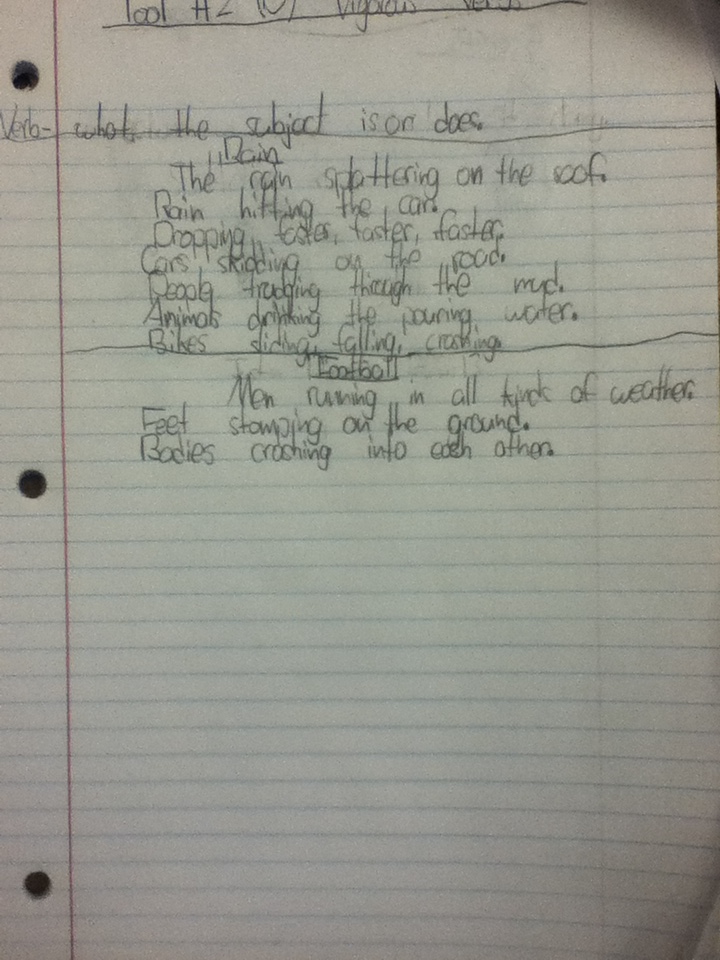 Tool #2 (U) Vigorous Verbs
Verb- what the subject is or does.
"Rain
The rain splattering on the roof.
Rain hitting the car.
Dropping, faster, faster, faster.
Cars skidding on the road.
People trudging through the mud.
Animals drinking the pouring water.
Bikes sliding, falling, crashing.
Football
Men running in all kinds of weather.
Feet stomping on the ground.
Bodies crashing into each other.